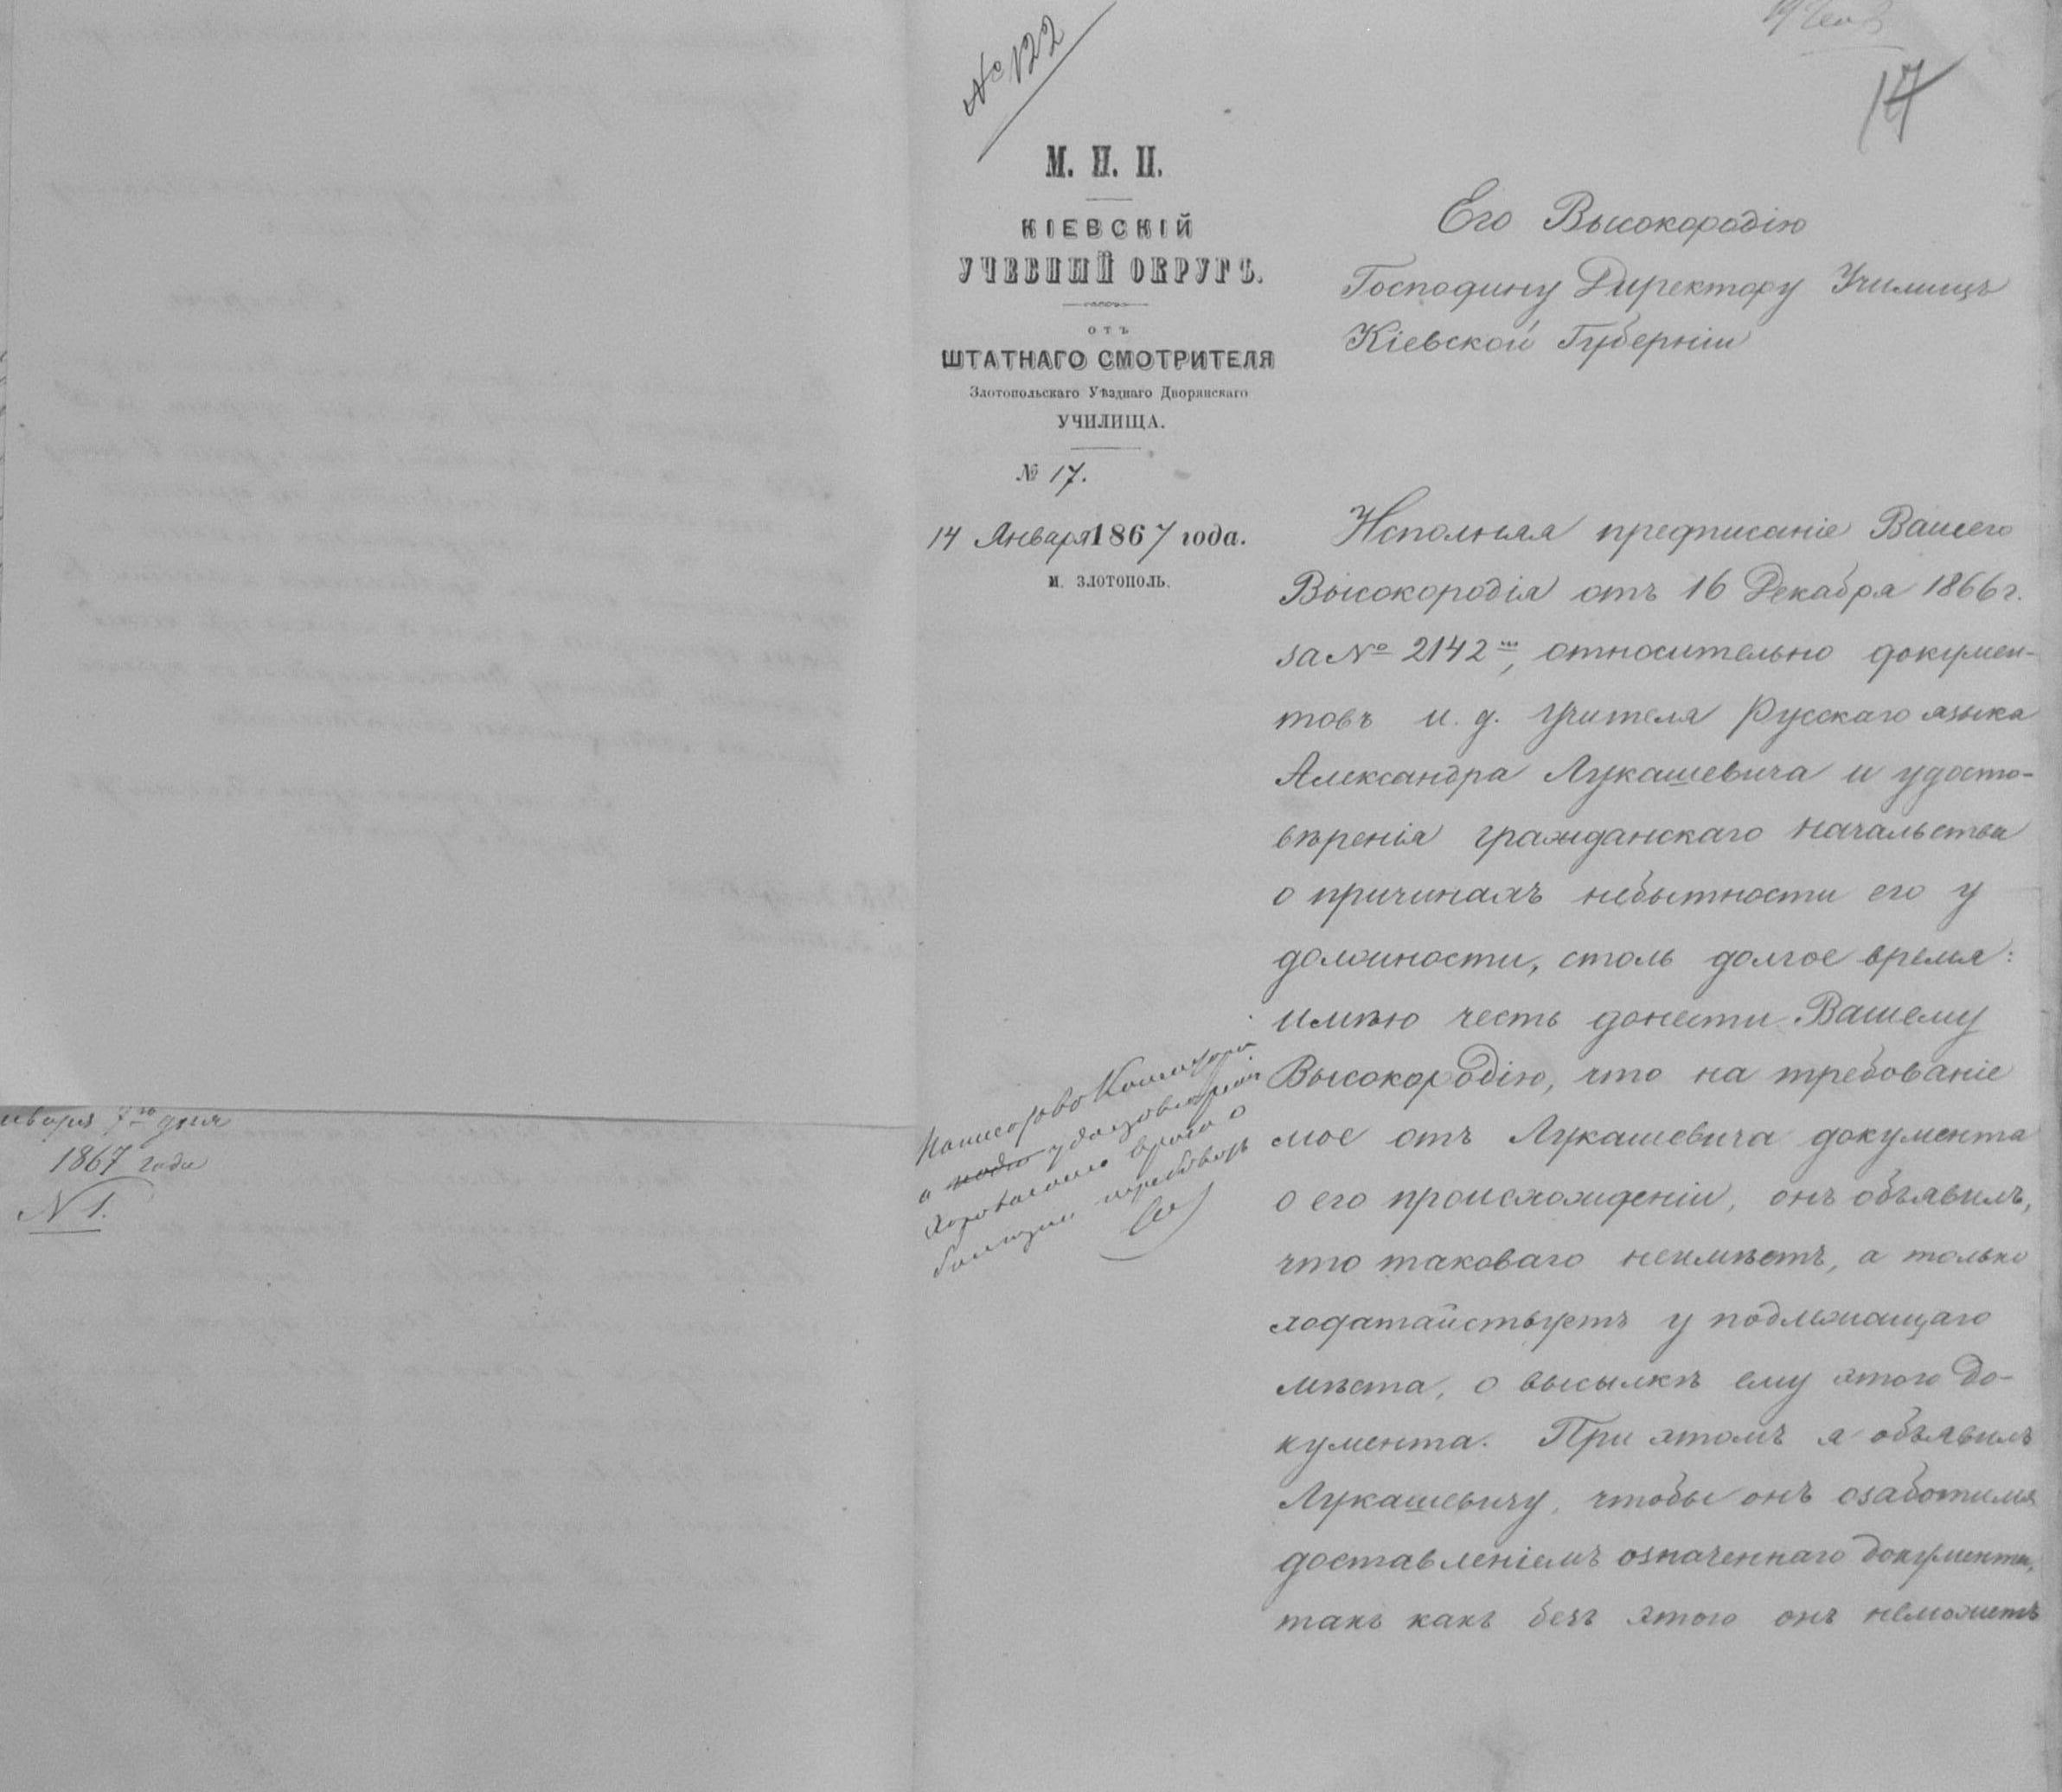 нваря 7го дня
1867 года
N 1.
№ 122
17
М. Н. П.
КІЕВСКІЙ
УЧЕБНЫЙ ОКРУГЪ.
ОТЪ
ШТАТНАГО СМОТРИТЕЛЯ
Златопольскаго Уѣзднаго Дворянскаго
УЧИЛИЩА.
№ 17.
14 Января 1867 года.
М. ЗЛОТОПОЛЬ.
Его Высокородію
Господину Директору Училищъ
Кіевской Губерніи
Исполняя предписаніе Вашего
Высокородія отъ 16 Декабря 1866 г.
за № 2142м, относительно докумен-
товъ и. д. учителя Русскаго языка
Александра Лукашевича и удосто-
вѣренія гражданскаго начальства
о причинахъ небытности его у
должности, столь долгое время:
имѣю честь донести Вашему
Высокородію, что на требованіе
мое отъ Лукашевича документа
о его происхожденіи, онъ объявилъ,
что таковаго неимѣетъ, а только
ходатайствуетъ у подлежащаго
мѣста, о высылкѣ ему этого до-
кумента. При этомъ я объявилъ
Лукашевичу, чтобы онъ озаботился
доставленіемъ означеннаго документа,
такъ какъ безъ этого онъ неможетъ